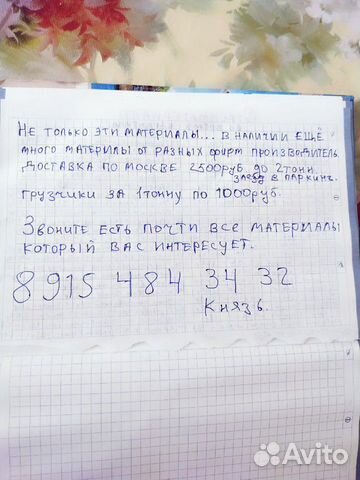 Не только эти материалы... в наличии ещё
много материлы от разных фирм производитель.
Доставка по Москве 2500руб до 2тонн.
заезд в паркинг.
грузчики за 1тонну по 1000руб.
Звоните есть почти все материалы
который вас интересует.
8 915 484 34 32
Князь.
Avito